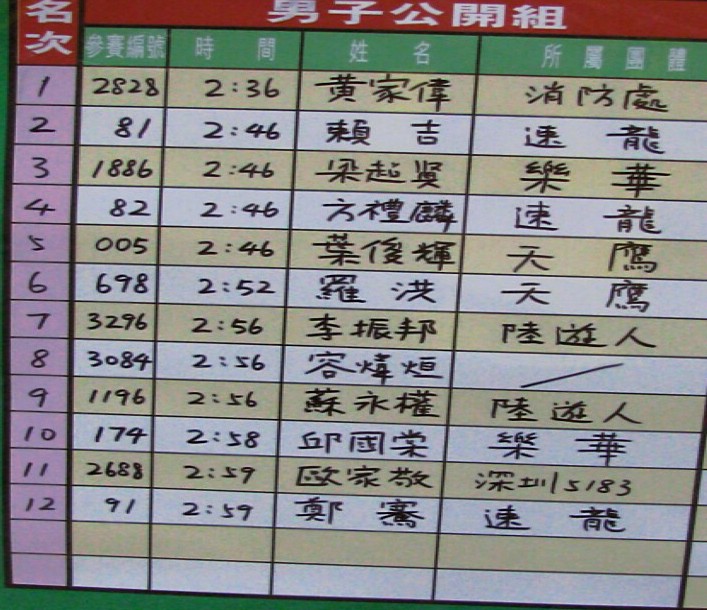 名次 男子公開組
參賽編號 時間 姓名 所屬團體
1 2828 2:36 黄家偉 消防處
2 81 2:46 賴吉 速龍
3 1886 2:46 梁起賢 樂華
4 82 2:46 方禮麟 速龍
5 005 2:46 葉俊輝 天鷹
6 698 2:52 羅洪 天鷹
7 3296 2:56 李振邦 陸遊人
8 3084 2:56 容煒烜
9 1196 2:56 蘇永權 陸遊人
10 174 2:58 邱國棠 樂華
11 2688 2:59 歐家敬 深圳5183
12 91 2:59 鄭騫 速龍